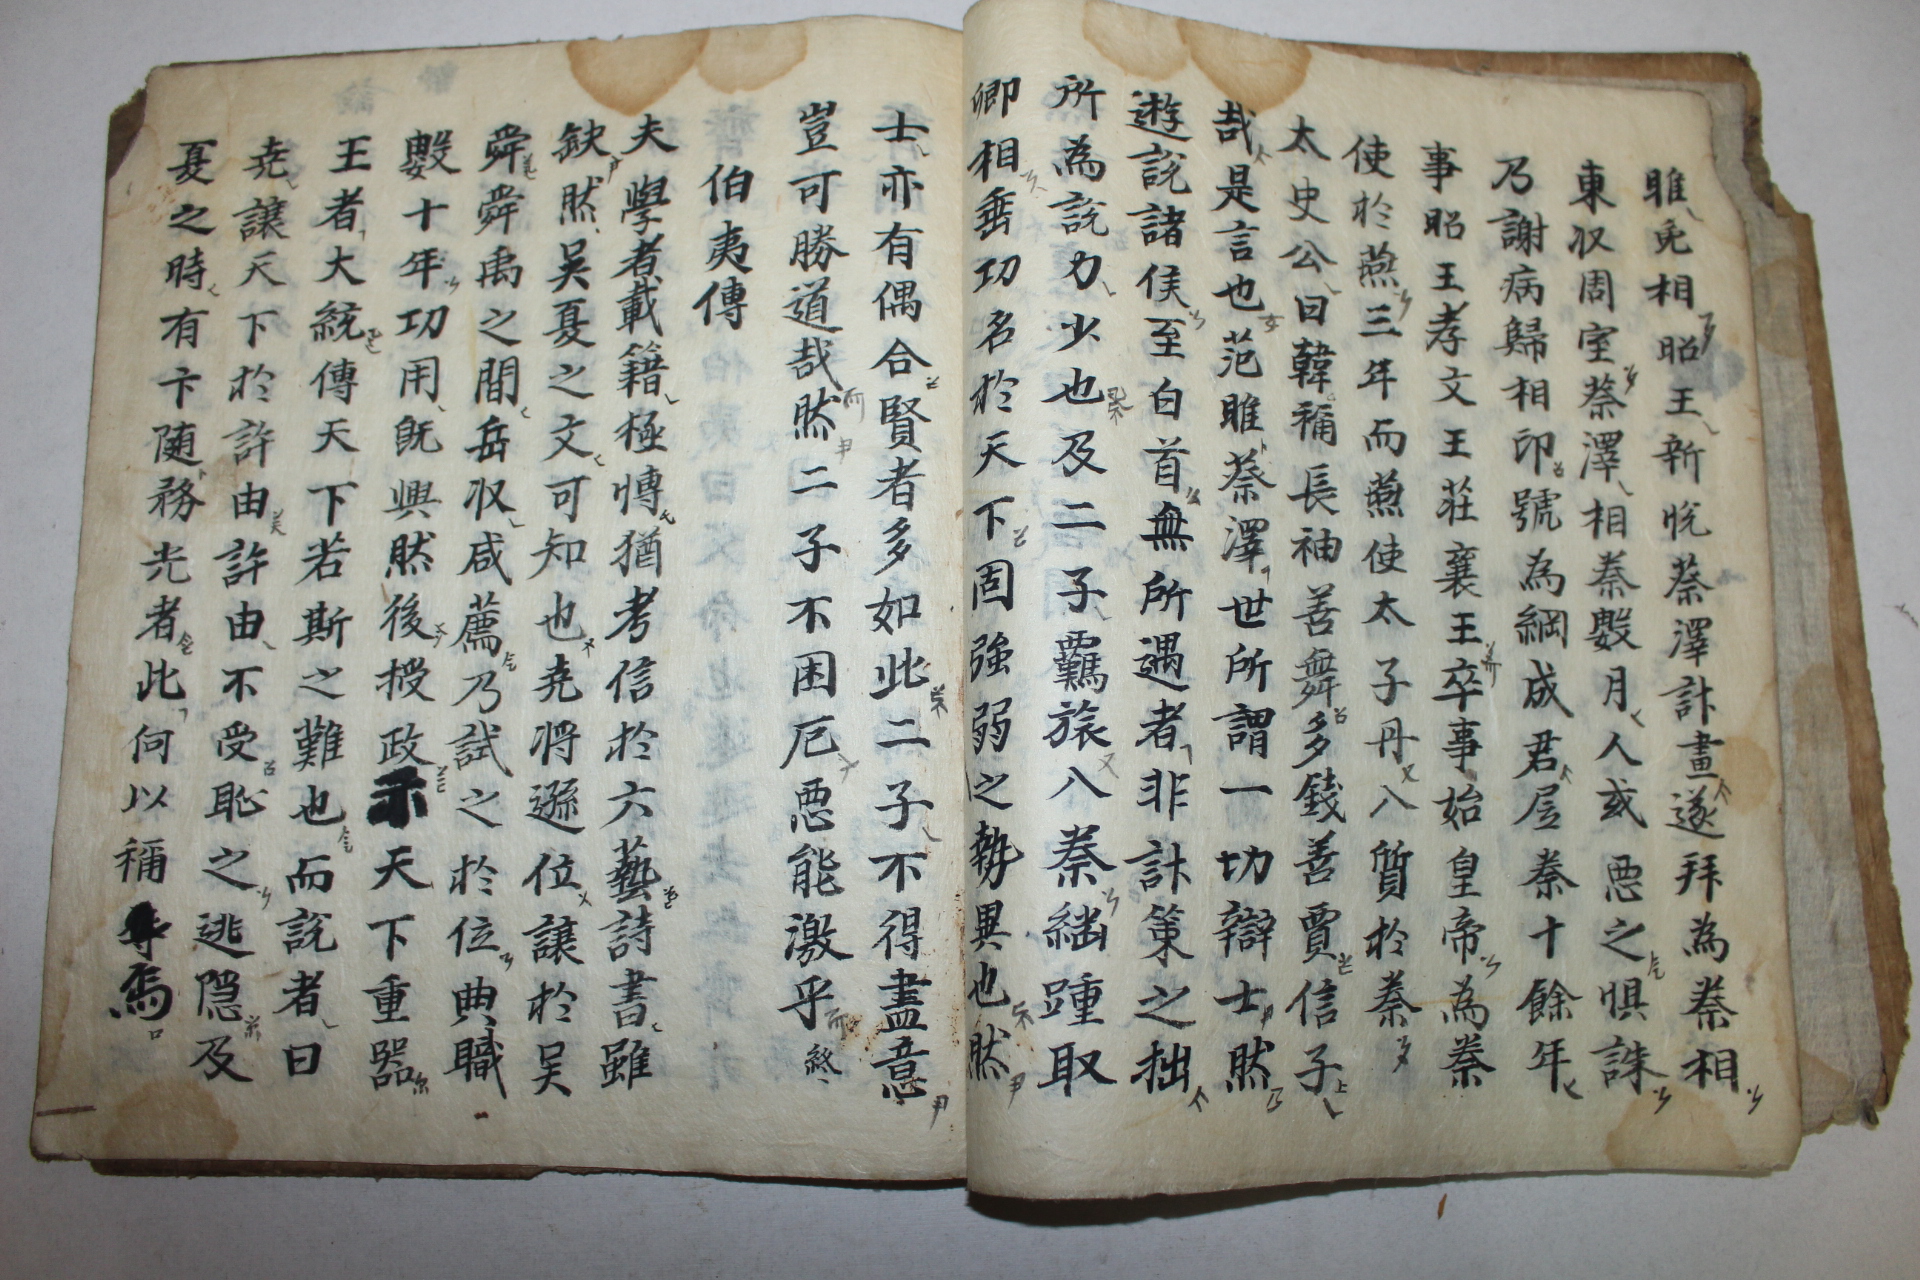 睢免相昭王新悅蔡澤計畫遂拜為秦相
東収周室蔡澤相秦數月人或惡之惧誅
乃謝病歸相印號為綱成君居秦十餘年
事昭王孝文王莊襄王卒事始皇帝為秦
使於燕三年而燕使太子丹入質於秦
太史公曰韓稱長袖善舞多錢善賈信子
哉是言也范睢蔡澤世所謂一切辯士然
遊說諸侯至白首無所遇者非計策之拙
所為說力少也及二子羈旅入秦繼踵取
卿相垂功名於天下固強弱之勢異也然
士亦有偶合賢者多如此二子不得盡意
豈可勝道哉然二子不困厄惡能激乎 終
伯夷傳
夫學者載籍極博猶考信於六藝詩書雖
缺然吴夏之文可知也堯将遜位讓於吴
舜舜禹之間岳収咸薦乃試之於位典職
數十年功用既興然後授政示天下重器
王者大統傳天下若斯之難也而說者曰
堯讓天下於許由許由不受恥之逃隠及
夏之時有卞随務光者此何以稱焉